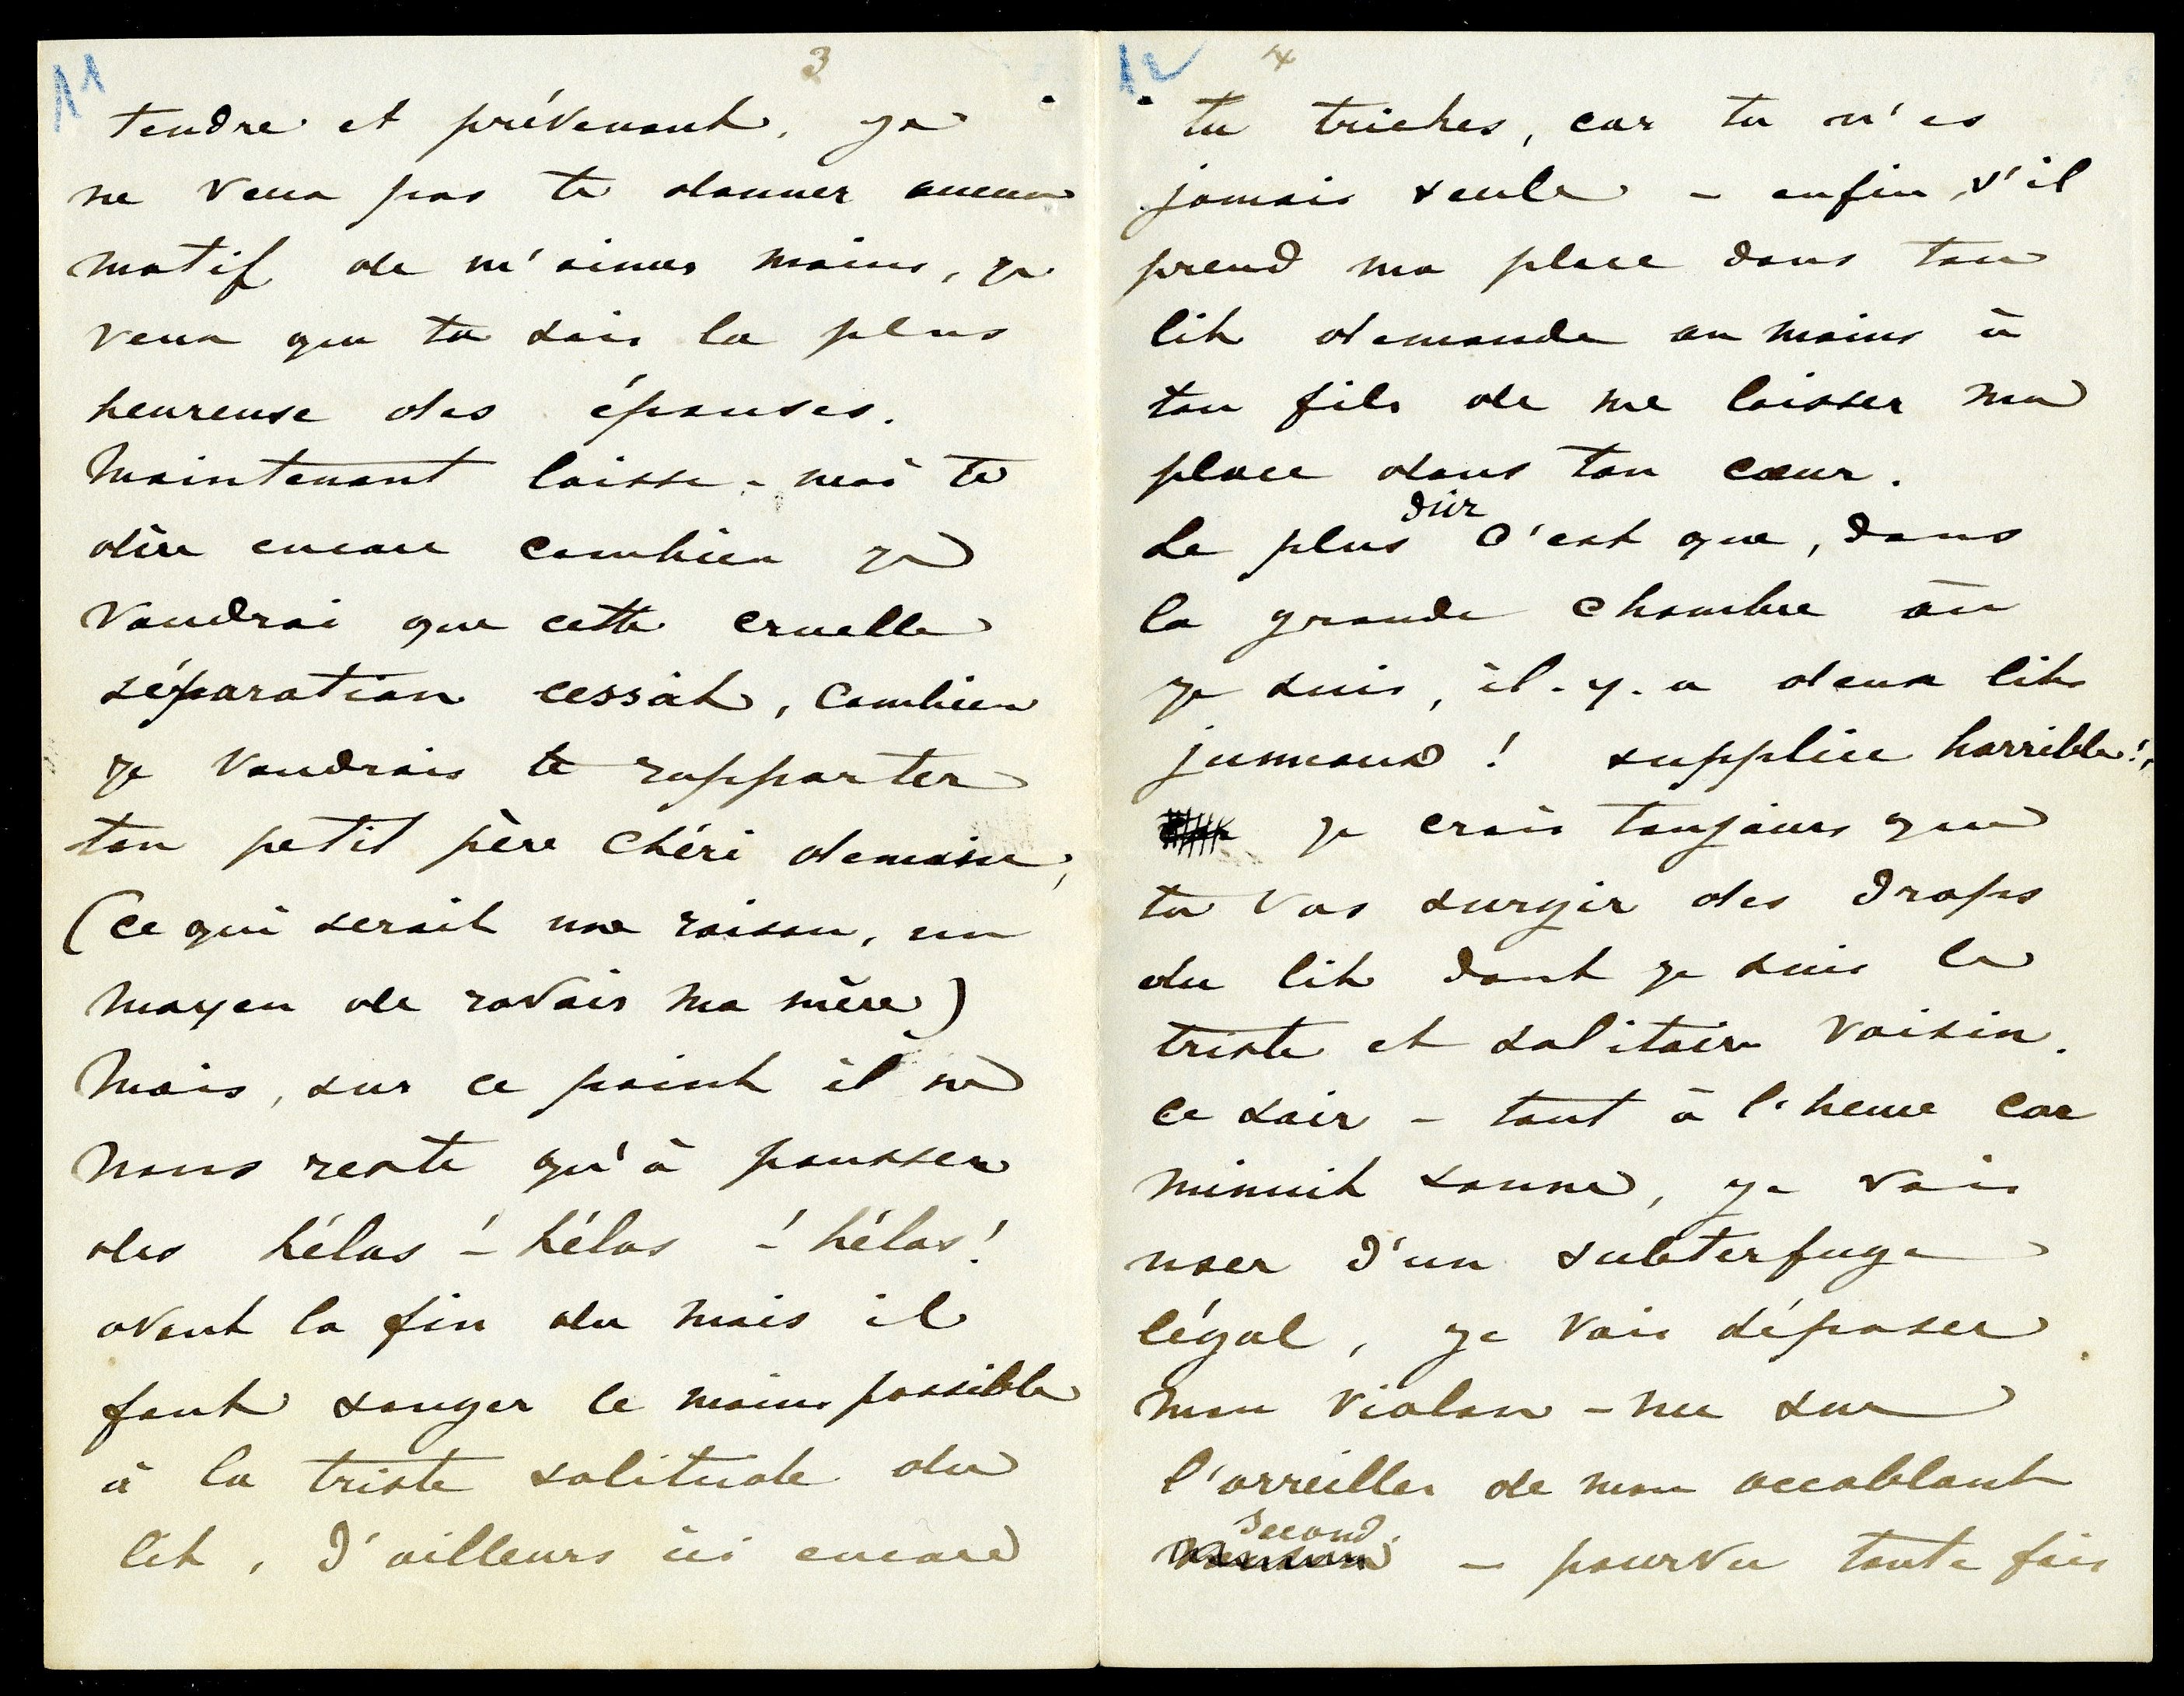 11
3
tendre et prévenant, je
ne veux pas te donner aucun
motif de m'aimer moins, je
veux que tu sois la plus
heureuse des épouses.
Maintenant laisse-moi te
dire encore combien je
voudrai que cette cruelle
séparation cessât, combien
je voudrais te rapporter
ton petit père chéri demain,
(ce qui serait une raison, un
moyen de ravoir ma mère)
Mais, sur ce point il ne
nous reste qu'à pousser
des hélas! - hélas! - hélas!
avant la fin du mois il
faut songer le moins possible
à la triste solitude du
lit, d'ailleurs ici encore
12
4
tu triches, car tu n'es
jamais seule - enfin, s'il
prend ma place dans ton
lit demande au moins à
ton fils de me laisser ma
place dans ton cœur.
Le plus dur c'est que, dans
la grande chambre où
je suis, il-y-a deux lits
jumeaux! supplice horrible!,
je crois toujours que
tu vas surgir des draps
du lit dont je suis le
triste et solitaire voisin.
Ce soir - tout à l'heure car
minuit sonne, je vais
user d'un subterfuge
légal, je vais déposer
mon violon - nu sur
l'orreiller de mon accablant
second - pourvu toute fois